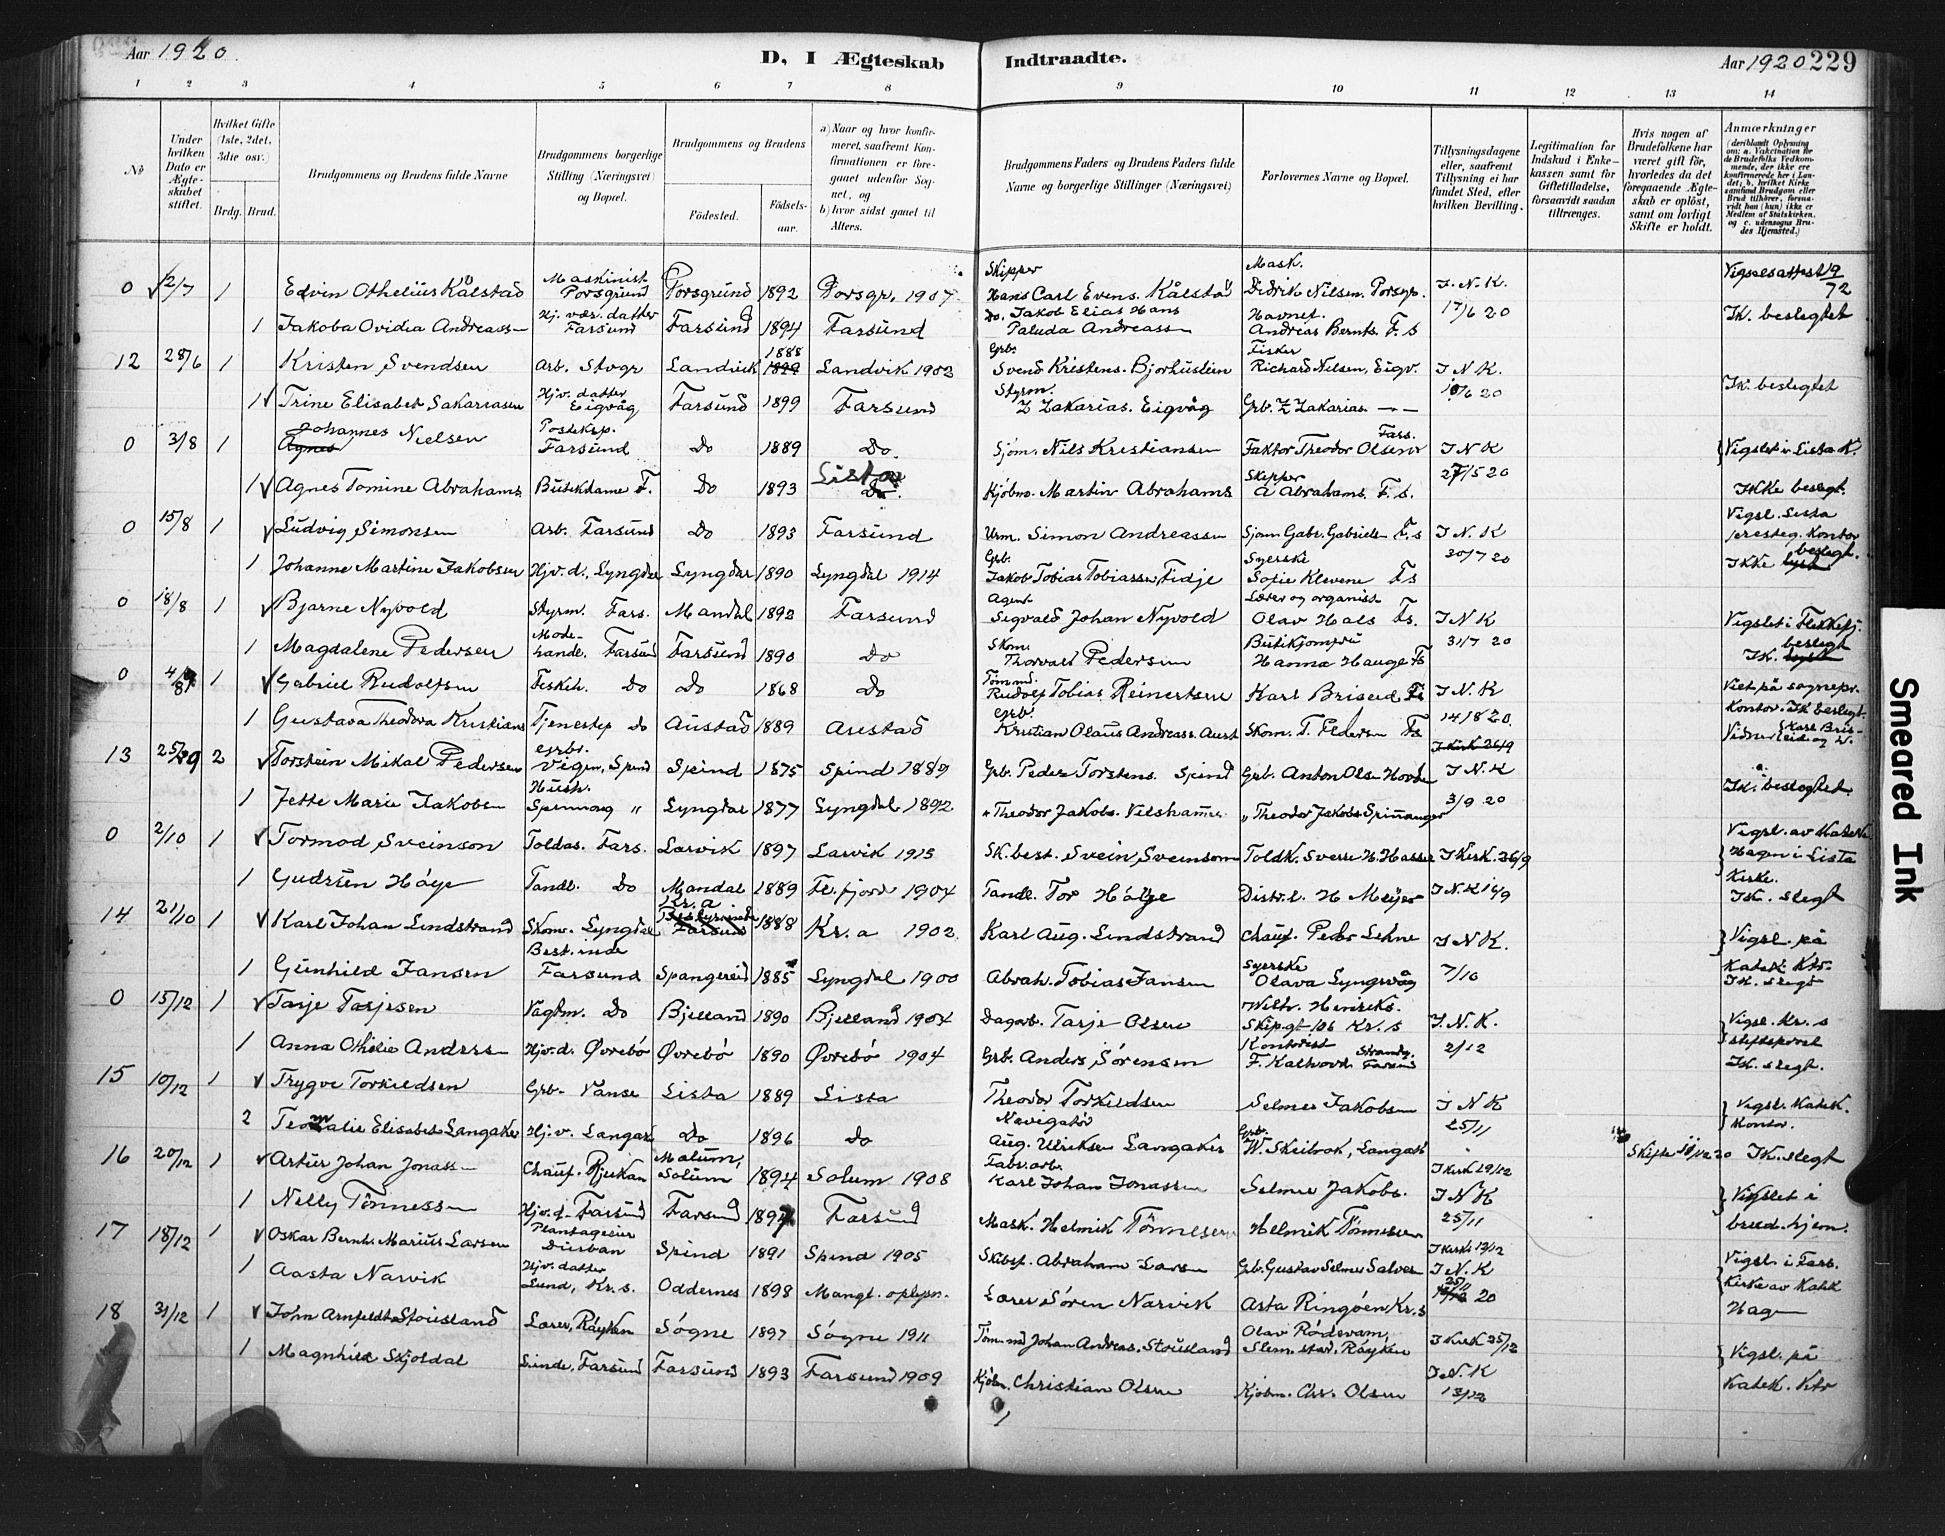 Aar 1920
D, I Ægteskab Indtraadte.
Aar 1920 229
1 2 3 4 5 6 7 8 9 10 11 12 13 14
No
Under hvilken Dato er Ægteskabet stiftet.
Hvilket Gifte (1ste, 2det, 3die osv.)
Brdg. Brud.
Brudgommens og Brudens fulde Navne
Brudgommens borgerlige Stilling (Næringsvei) og Bopæl.
Brudgommens og Brudens
Fødested. Fødselsaar.
a) Naar og hvor konfirmeret, saafremt Konfirmationen er foregaaet udenfor Sognet, og
b) hvor sidst gaaet til Alters.
Brudgommens Faders og Brudens Faders fulde Navne og borgerlige Stillinger (Næringsvei)
Forlovernes Navne og Bopæl.
Tillysningsdagene eller, saafremt Tillysning ei har fundet Sted, efter hvilken Bevilling.
Legitimation for Indskud i Enkekassen samt for Giftetilladelse, forsaavidt saadan tiltrænges.
Hvis nogen af Brudefolkene har været gift før, hvorledes da det foregaaende Ægteskab er opløst, samt om lovligt Skifte er holdt.
Anmærkninger
(deriblandt Oplysning om: a. Vakcination for de Brudefolks Vedkommende, der ikke ere konfirmerede her i Landet; b. hvilket Kirkesamfund Brudgom eller Brud tilhører, forsaavidt han (hun) ikke er Medlem af Statskirken, og c. udensogns Brudes Hjemsted.)
0 12/7 1 Edvin Othelius Kålstad Maskinist Porsgrund Porsgrund 1892 Porsgr. 1907 Skipper Hans Carl Evens. Kålstad Mask. Didrik Nilsen. Porsgr. I.N.K. Vigselsattest 19/72
1 Jakoba Ovidia Andreass- Hj. vær. datter Farsund Farsund 1894 Farsund Do. Jakob Elias Hans Paluda Andreass Havnef. Andreas Bernts. F.s 17/6 20 IK. beslegtet
12 28/6 1 Kristen Svendsen Arb. Stogr Landvik 1888 Landvik 1902 Grb. Svend Kristens. Bjorhustein Fisker Richard Nilsen, Eigv. I N K.
1 Trine Elisabet Sakariasen Hjv. datter Eigvåg Farsund 1899 Farsund Styrm. Z Zakarias. Eigvåg Grb. Z Zakarias — 10/6 20 IK. beslegtet
0 3/8 1 Johannes Nielsen Posteksp. Farsund Do 1889 Do. Sjøm. Nils Kristiansen Faktor Theodor Olsen Fars. I N K Vigslet i Lista K.
1 Agnes Tomine Abrahams Butikdame F. Do 1893 Lista Kjøbm. Martin Abrahams Skipper A Abrahams. F.s. 27/5 20 IKKe beslegt.
0 15/8 1 Ludvig Simonsen Arb. Farsund Do 1893 Farsund Urm. Simon Andreassen Sjøm Gabr. Gabriels F.s I N K Vigsl. Lista presteg. Kontor
1 Johanne Martine Jakobsen Hjv.d., Lyngdal Lyngdal 1890 Lyngdal 1914 Grb. Jakob Tobias Tobiassen, Fidje Syerske Sofie Klevene Fs 30/7 20 IKKe beslegt.
0 18/8 1 Bjarne Nyvold Styrm. Fars. Mandal 1892 Farsund Agent Sigvald Johan Nyvold Lærer og organist Olav Hals Fs. I N K Vigslet i Flekkefj.
1 Magdalene Pedersen Modehandl. Farsund Farsund 1890 Do Skom. Thorvald Pedersen Butikjomfru Hanna Hauge Fs 31/7 20 IK. beslegt
0 4/9 1 Gabriel Rudolfsen Feskeh. Do Do 1868 Do Tømmd. Rudolf Tobias Reinertsen Karl Briseid Fs I.N.K Viet på sognepr.
1 Gustava Theodora Kristians Tjenestep Do Austad 1889 Austad Grb. Kristian Olaus Andreass. Aust Skom. T. Pedersen Fs 14/8 20. Kontor. IK beslegt. Vidner Karl Briseid og
13 25/9 2 Torstein Mikal Pedersen Grbr. Vigen, Spind Spind 1875 Spind 1889 Grb. Peder Torstens. Spind Grb. Anton Olsen Hovden I.N.K
1 Jette Marie Jakobsen Hush. Spinnang " Lyngdal 1877 Lyngdal 1892 " Theodor Jakobs. " Theodor Jakobs Spinnanger 3/9 20 IK. beslegtet.
0 2/10 1 Tormod Sveinson Toldas. Fars. Larvik 1897 Larvik 1913 Sk.best. Svein Sveinson Toldk. Sverre H. Hassel I Kirk. 26/9 Vigsl. av Katek.
1 Gudrun Høye Tandl. Do Mandal 1889 Fl.fjord 1904 Tandl. Tor Høye Distr.l. H Meyer I N.K 14/9 Hagn i Lista Kirke. IK. slegt
14 21/10 1 Karl Johan Lindstrand Skom. Lyngdal Kr.a 1888 Kr.a 1902 Karl Aug. Lindstrand Chauf. Peder Lehne I N K. Vigsl. på
1 Gunhild Jansen Best.inde Farsund Spangereid 1885 Lyngdal 1900 Abrah. Tobias Jansen Syerske Olava Lyngsvåg 7/10 Katek Ktr. IK. slegt
0 15/12 1 Tarje Tarjesen Vagtm. Do Bjelland 1890 Bjelland 1904 Dagarb. Tarje Olsen Wilh. Henriks. Skip.gt 106 Kr.s I.N.K. Vigsl. Kr.s
1 Anna Othelie Anders- Hjv.d. Øvrebø Øvrebø 1890 Øvrebø 1904 Grb. Anders Sørensen Kontorist F. Kalhovd. Strandg. Farsund 2/12 stiftsprost IK. slegt.
15 10/12 1 Trygve Torkildsen Grb. Vanse Lista 1889 Lista Theodor Torkildsen Selmer Jakobsen I N K Vigsl. Katek.
2 Teomalie Elisabet Langaker Hj.v. Langak Do 1896 Do Navigatør Aug. Ulriksen Langaker Grb. W. Skeibrok, Langak 25/11 Skifte 10/12 20 Kontor. IK. slegt
16 20/12 1 Artur Johan Jonass- Chauf. Rjukan Solum 1894 Solum 1908 Fabr.arb. Karl Johan Jonassen Selmer Jakobs. I Kirk 19/12 I N K Vigslet i
1 Nelly Tønnessen Hjv.d. Farsund Farsund 1897 Farsund Mask. Helmik Tønnesen Helmik Tønnesen 25/11 brud. hjem.
17 18/12 1 Oskar Bernh. Marius Larsen Plantageeier Durban Spind 1891 Spind 1905 Skibsf. Abraham Larsen Grb. Gustav Selmer Salves I Kirk 12/12 I.N.K Vigsl. i Fars.
1 Aasta Narvik Hjv. datter Lund, Kr.s. Oddernes 1898 Mangl. oplysn. Lærer Søren Narvik Asta Ringøen Kr.s 25/11 20 Kirke av Katek Hagn
18 31/12 1 John Arnfeldt Stousland Lærer, Røyken Søgne 1897 Søgne 1911 Tøm.md Johan Andreas. Stousland Olav Rødevam, Slemstad, Røyken I Kirk 25/12
1 Magnhild Skjoldal Farsund Farsund 1893 Farsund 1909 Kjøbm. Christian Olsen Kjøbm. Chr. Olsen I.N.K 13/12 Vigsl. på Katek. Ktr
Smeared Ink